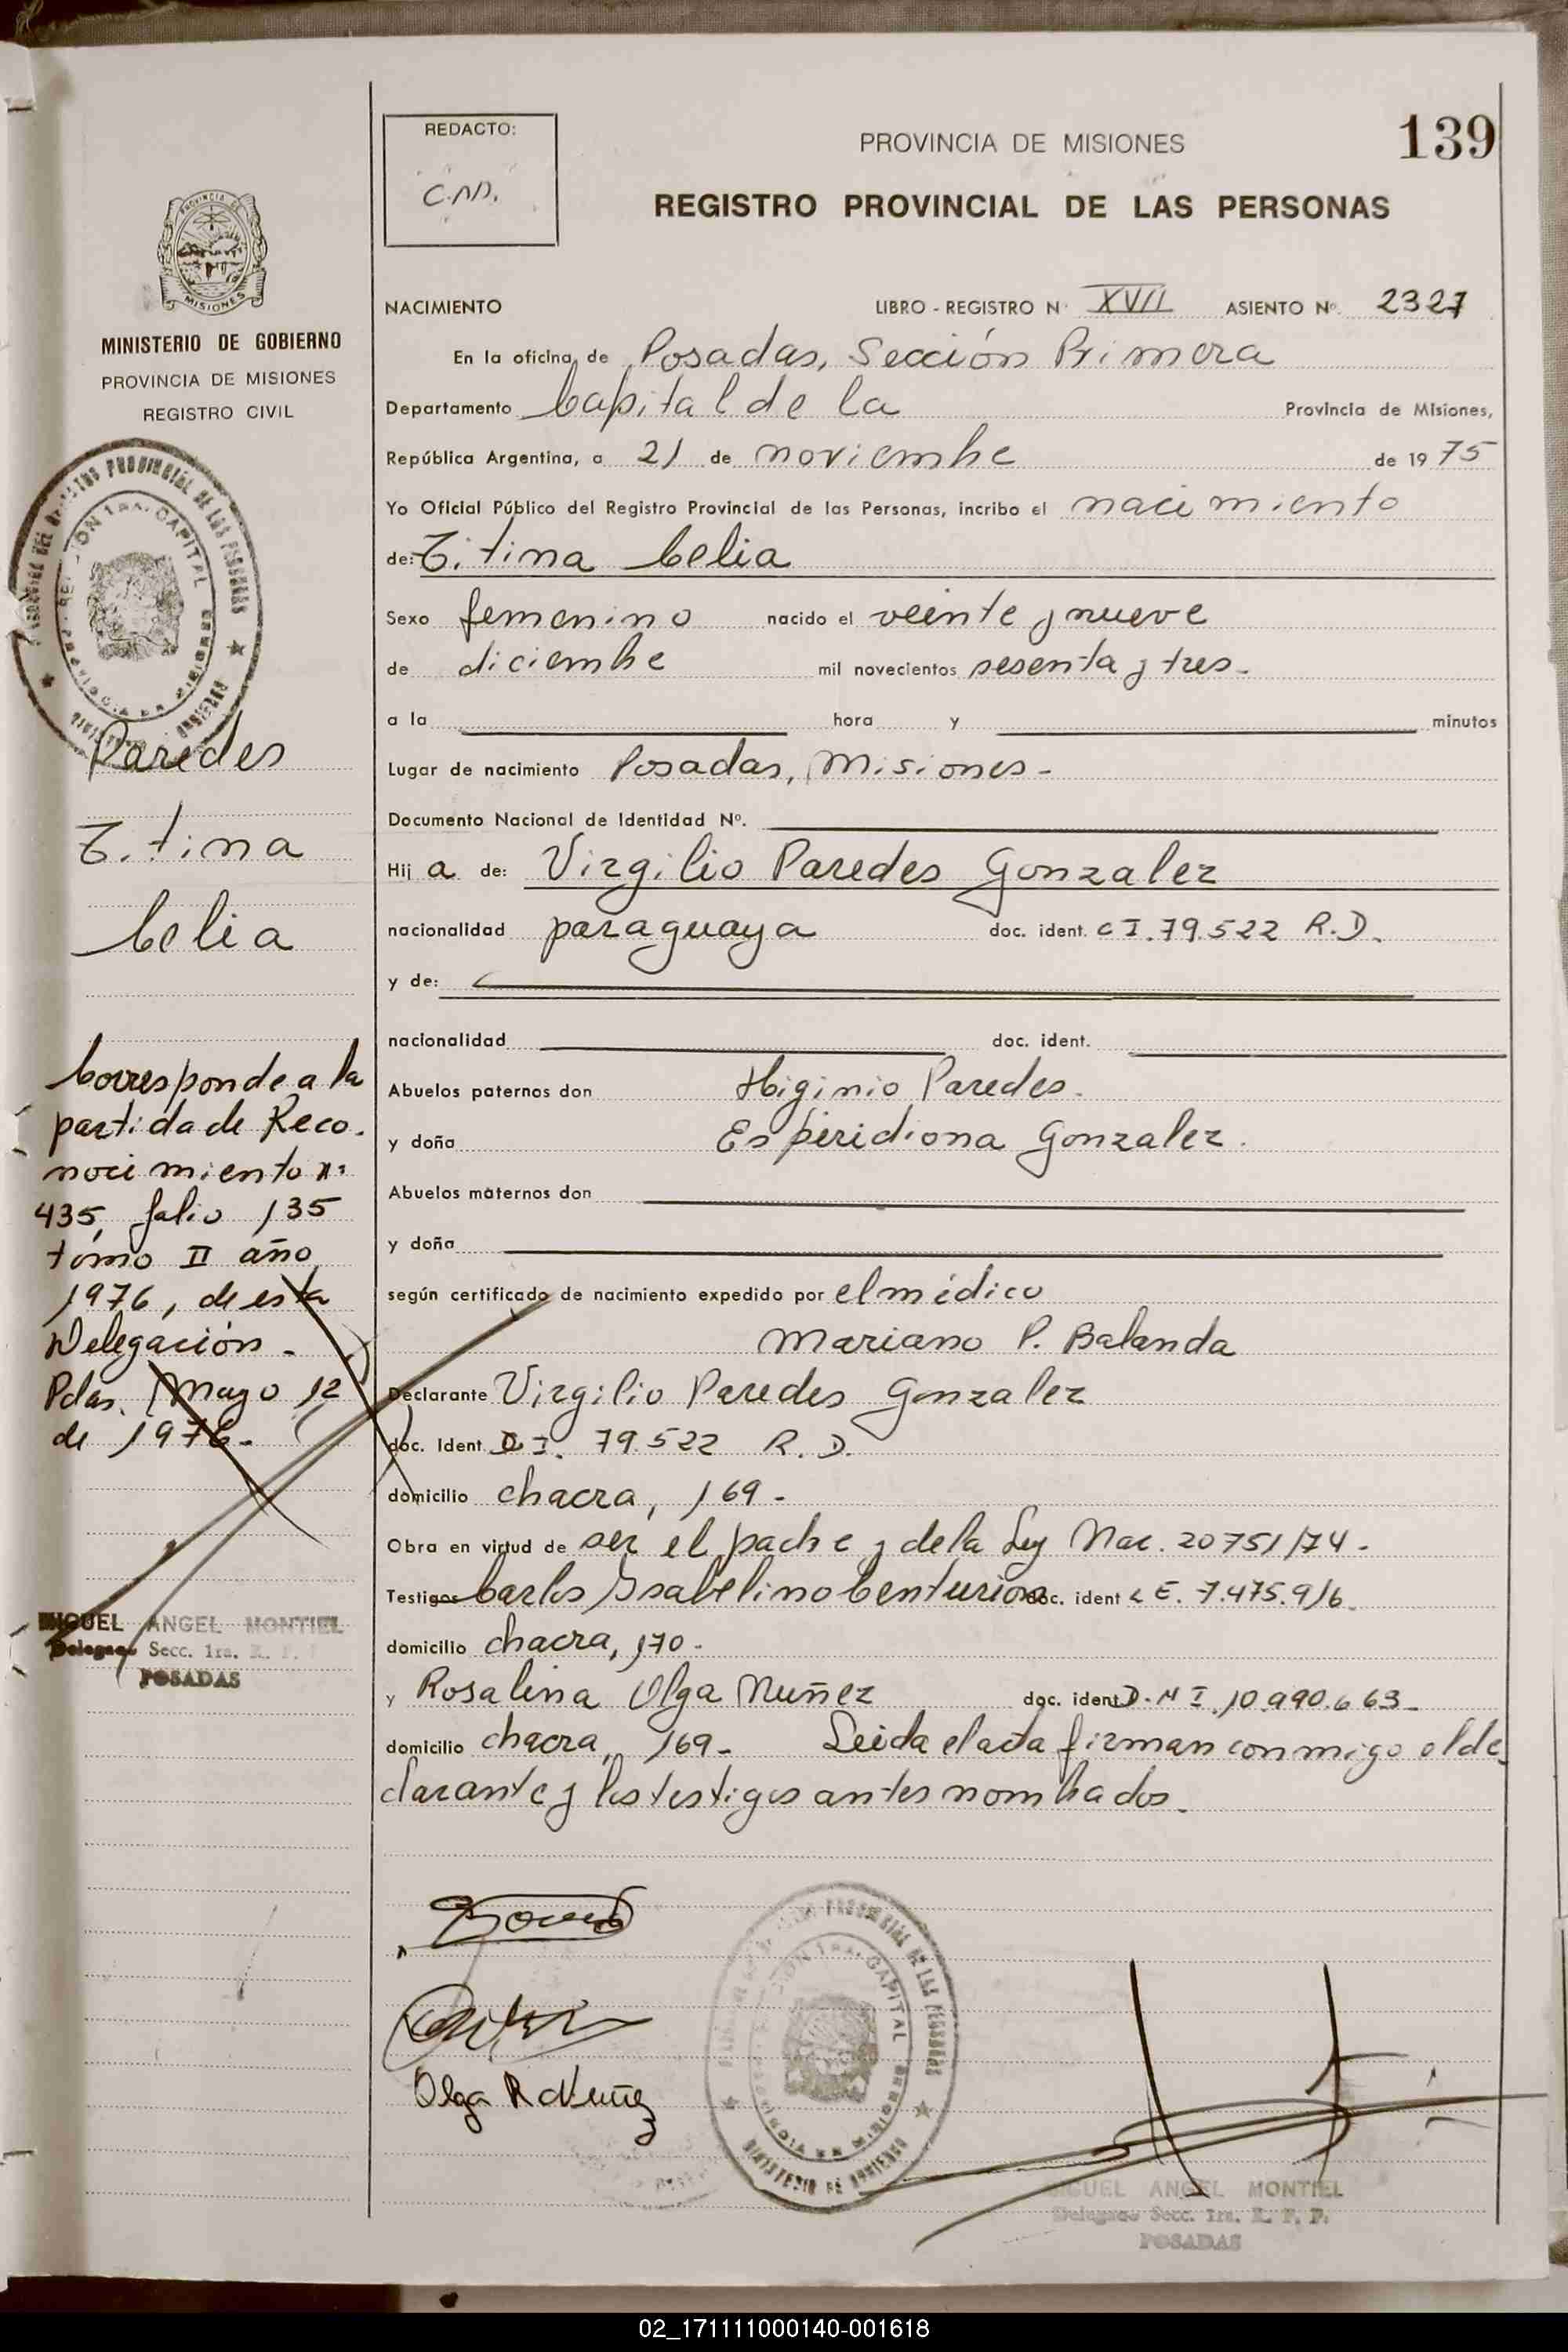 139
REDACTO:
PROVINCIA DE MISIONES
REGISTRO PROVINCIAL DE LAS PERSONAS
MISIONES
MINISTERIO DE GOBIERNO
PROVINCIA DE MISIONES
REGISTRO CIVIL
Paredes
Titina
Celia
Corresponde a la
partida de Reco-
nocimiento nº
435, folio 135
tomo II año
1976, de esta
Delegación -
Pdas. Mayo 12
de 1976-
MIGUEL ANGEL MONTIEL
Delegado Secc. 1ra. R. P. P.
POSADAS
NACIMIENTO LIBRO - REGISTRO Nº XVII ASIENTO Nº 2327
En la oficina de Posadas, Sección Primera
Departamento Capital de la Provincia de Misiones,
República Argentina, a 21 de noviembre de 1975
Yo Oficial Público del Registro Provincial de las Personas, incribo el nacimiento
de: Titina Celia
Sexo femenino nacido el veinte y nueve
de diciembre mil novecientos sesenta y tres-
a la hora y minutos
Lugar de nacimiento Posadas, Misiones-
Documento Nacional de Identidad Nº.
Hija de: Virgilio Paredes Gonzalez
nacionalidad paraguaya doc. ident. C I. 79.522 R.D.
y de:
nacionalidad doc. ident.
Abuelos paternos don Higinio Paredes.
y doña Esperidiona Gonzalez.
Abuelos maternos don
y doña
según certificado de nacimiento expedido por el médico
Mariano P. Balanda
Declarante Virgilio Paredes Gonzalez
doc. Ident C I. 79.522 R. D.
domicilio chacra, 169-
Obra en virtud de ser el padre y de la Ley Nac. 20751/74-
Testigos Carlos Isabelino Centurion doc. ident L E. 7.475.916
domicilio chacra, 170-
y Rosalina Olga Nuñez doc. ident D.N I. 10.990.663-
domicilio chacra, 169- Leida el acta firman conmigo el de-
clarante y los testigos antes nombrados-
Olga R Nuñez
MIGUEL ANGEL MONTIEL
Delegado Secc. 1ra. R. P. P.
POSADAS
02_171111000140-001618